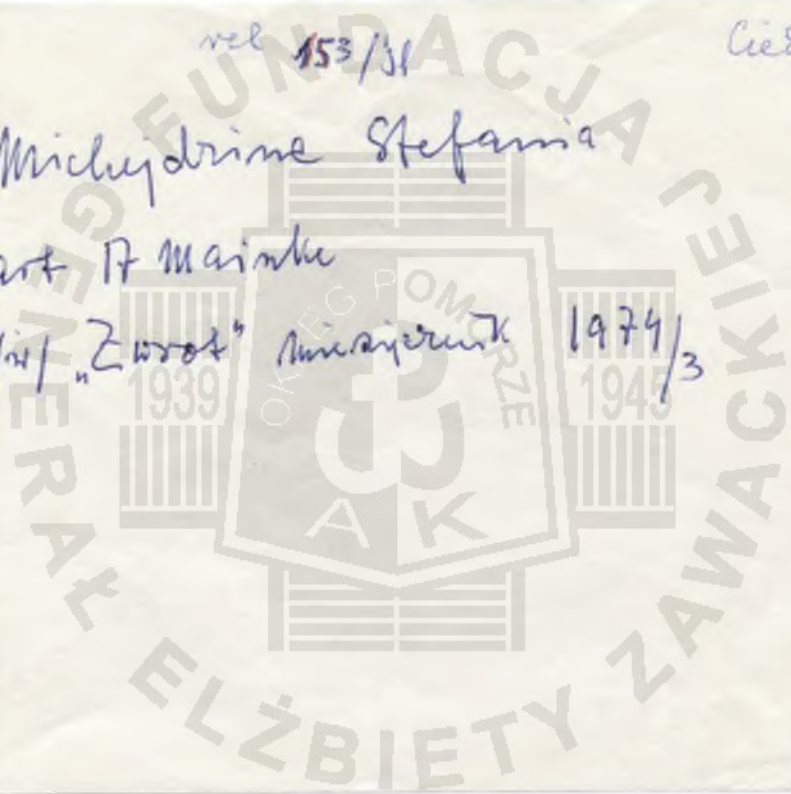 rel 153/
Michejdzina Stefania
art
"Zwrot" miesięcznik 1974/3
FUNDACJA GENERAŁ ELŻBIETY ZAWACKIEJ
OKRĘG POMORZE
1939 1945
AK